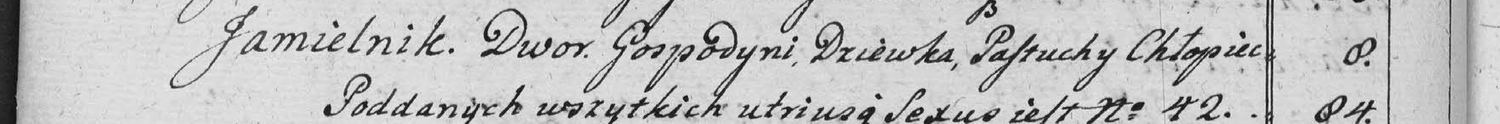 Jamielnik. Dwor. Gospodyni, Dziewka, Pastuchy Chłopiec 8.
Poddanych wszytkich utriusq Sexus iest No 42. 84.